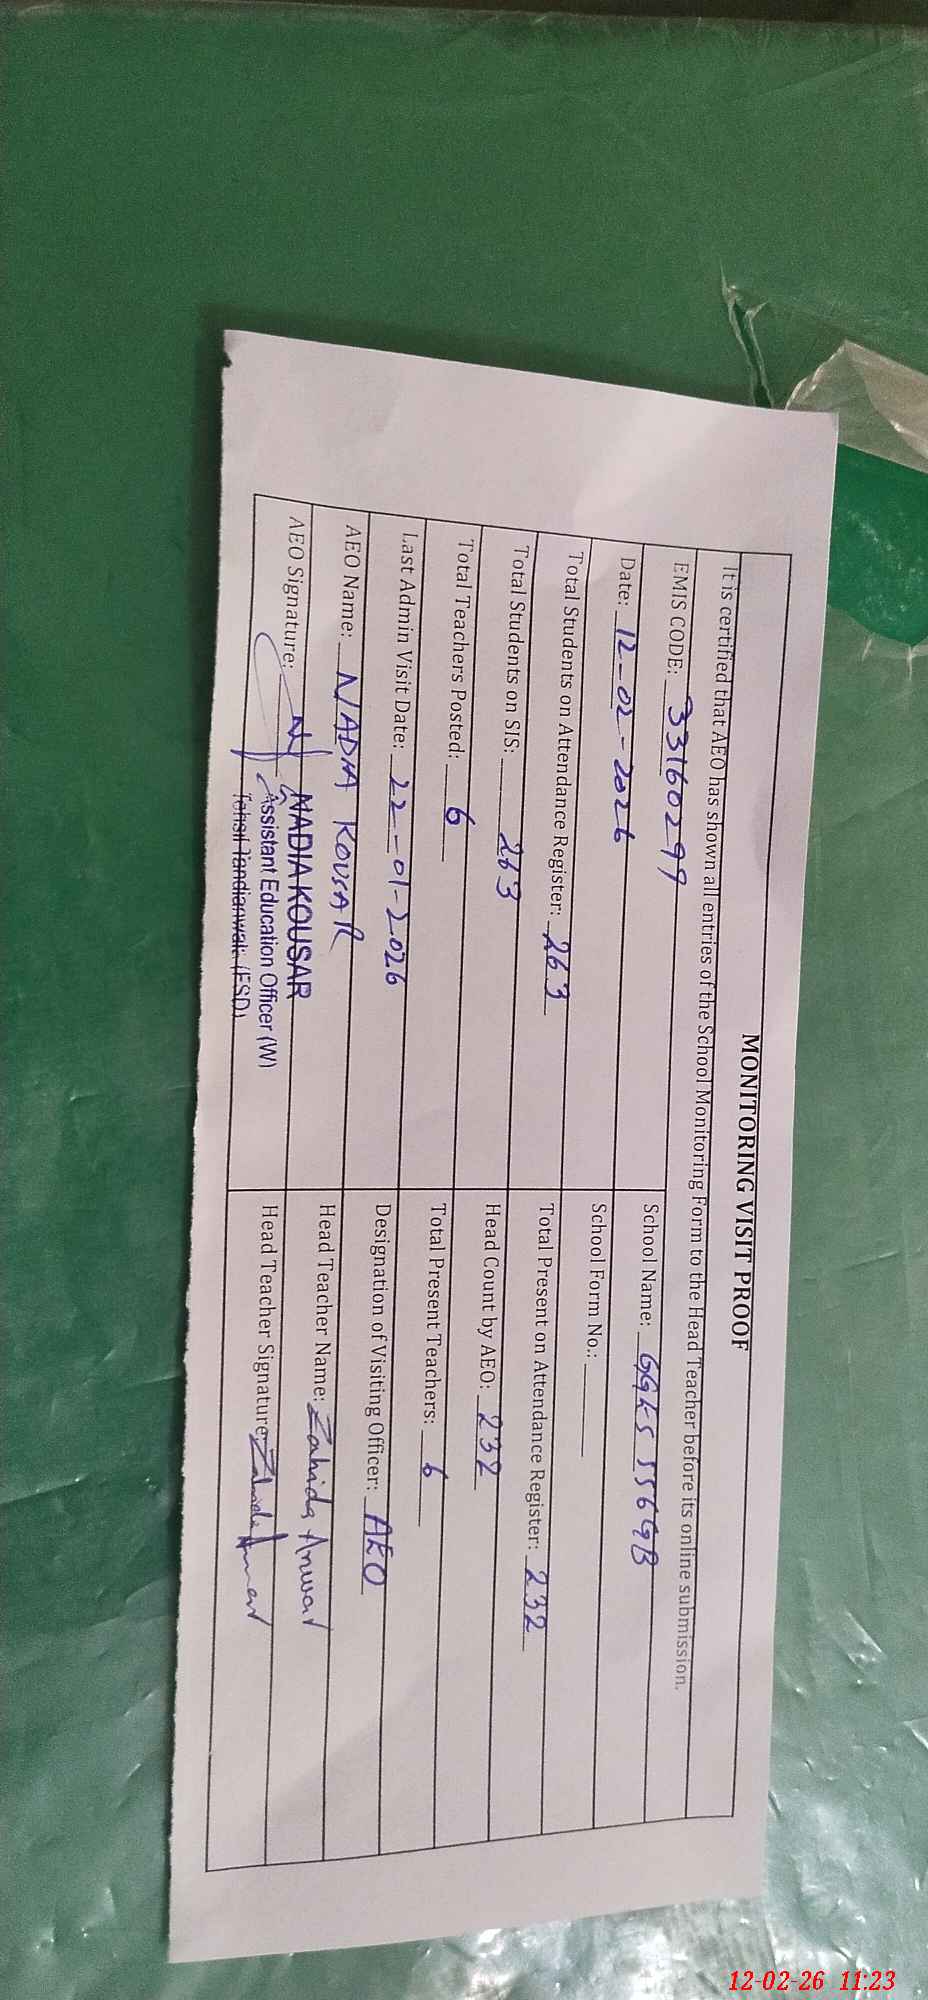 MONITORING VISIT PROOF
It is certified that AEO has shown all entries of the School Monitoring Form to the Head Teacher before its online submission.
EMIS CODE: 33160299 School Name: GGES 556GB
Date: 12-02-2026 School Form No.:
Total Students on Attendance Register: 263 Total Present on Attendance Register: 232
Total Students on SIS: 263 Head Count by AEO: 232
Total Teachers Posted: 6 Total Present Teachers: 6
Last Admin Visit Date: 22-01-2026 Designation of Visiting Officer: AEO
AEO Name: NADIA KOUSAR Head Teacher Name: Zahida Anwar
AEO Signature: Head Teacher Signature Zahida Anwar
NADIA KOUSAR
Assistant Education Officer (W)
Tehsil Tandlianwala (FSD)
12-02-26 11:23